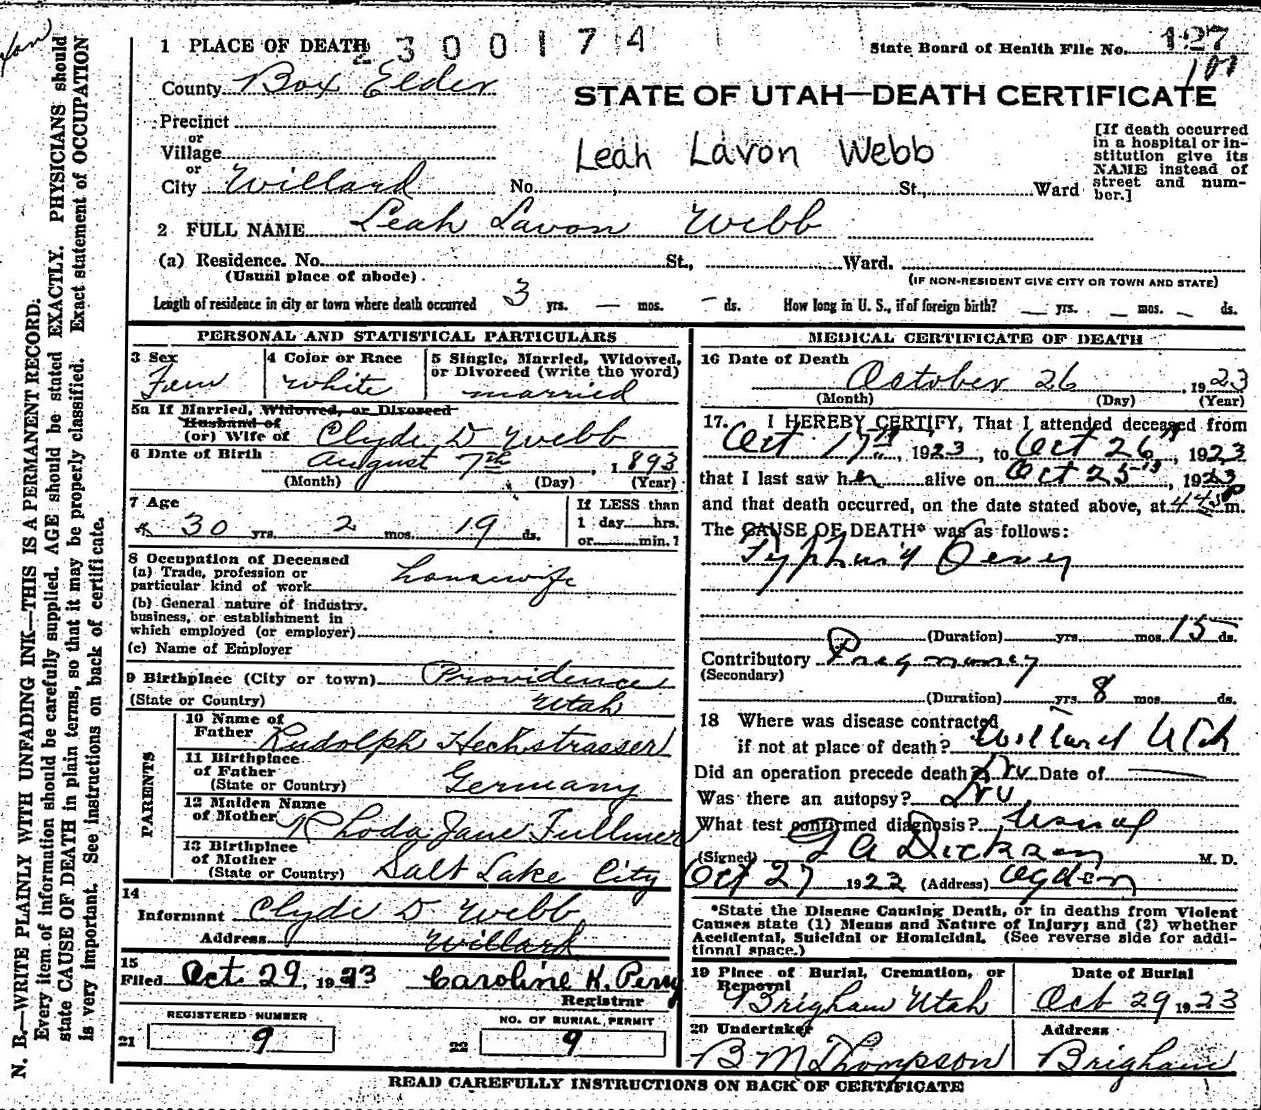 1 PLACE OF DEATH 2300174
State Board of Health File No. 127
107
County Box Elder
STATE OF UTAH—DEATH CERTIFICATE
Precinct
or
Village
or
City Willard No. St., Ward
Leah Lavon Webb
[If death occurred in a hospital or institution give its NAME instead of street and number.]
2 FULL NAME Leah Lavon Webb
(a) Residence. No. St., Ward.
(Usual place of abode) (IF NON-RESIDENT GIVE CITY OR TOWN AND STATE)
Length of residence in city or town where death occurred 3 yrs. — mos. - ds. How long in U. S., if of foreign birth? — yrs. - mos. - ds.
PERSONAL AND STATISTICAL PARTICULARS
3 Sex Fem
4 Color or Race White
5 Single, Married, Widowed, or Divorced (write the word) married
5a If Married, Widowed, or Divorced
Husband of
(or) Wife of Clyde D Webb
6 Date of Birth August 7th, 1893
(Month) (Day) (Year)
7 Age 30 yrs. 2 mos. 19 ds.
If LESS than 1 day hrs. or min.?
8 Occupation of Deceased
(a) Trade, profession or particular kind of work housewife
(b) General nature of industry, business, or establishment in which employed (or employer)
(c) Name of Employer
9 Birthplace (City or town) Providence
(State or Country) Utah
PARENTS
10 Name of Father Rudolph Hechstrasser
11 Birthplace of Father (State or Country) Germany
12 Maiden Name of Mother Rhoda Jane Fullmer
13 Birthplace of Mother (State or Country) Salt Lake City
14
Informant Clyde D Webb
Address Willard
15
Filed Oct 29, 1923 Caroline K. Perry
Registrar
REGISTERED NUMBER
21 9
NO. OF BURIAL PERMIT
22 9
MEDICAL CERTIFICATE OF DEATH
16 Date of Death October 26, 1923
(Month) (Day) (Year)
17. I HEREBY CERTIFY, That I attended deceased from
Oct 17th, 1923, to Oct 26th, 1923
that I last saw her alive on Oct 25th, 1923
and that death occurred, on the date stated above, at 445 P m.
The CAUSE OF DEATH* was as follows:
Typhoid Fever
(Duration) yrs. mos. 15 ds.
Contributory Pregnancy
(Secondary)
(Duration) yrs. 8 mos. ds.
18 Where was disease contracted
if not at place of death? Willard Utah
Did an operation precede death? No Date of —
Was there an autopsy? No
What test confirmed diagnosis? Usual
(Signed) Dickson M. D.
Oct 27 1923 (Address) Ogden
*State the Disease Causing Death, or in deaths from Violent
Causes state (1) Means and Nature of Injury; and (2) whether
Accidental, Suicidal or Homicidal. (See reverse side for addi-
tional space.)
19 Place of Burial, Cremation, or Removal Brigham Utah
Date of Burial Oct 29 1923
20 Undertaker B M Thompson
Address Brigham
READ CAREFULLY INSTRUCTIONS ON BACK OF CERTIFICATE
N. B.—WRITE PLAINLY WITH UNFADING INK—THIS IS A PERMANENT RECORD.
Every item of information should be carefully supplied. AGE should be stated EXACTLY. PHYSICIANS should
state CAUSE OF DEATH in plain terms, so that it may be properly classified. Exact statement of OCCUPATION
is very important. See instructions on back of certificate.